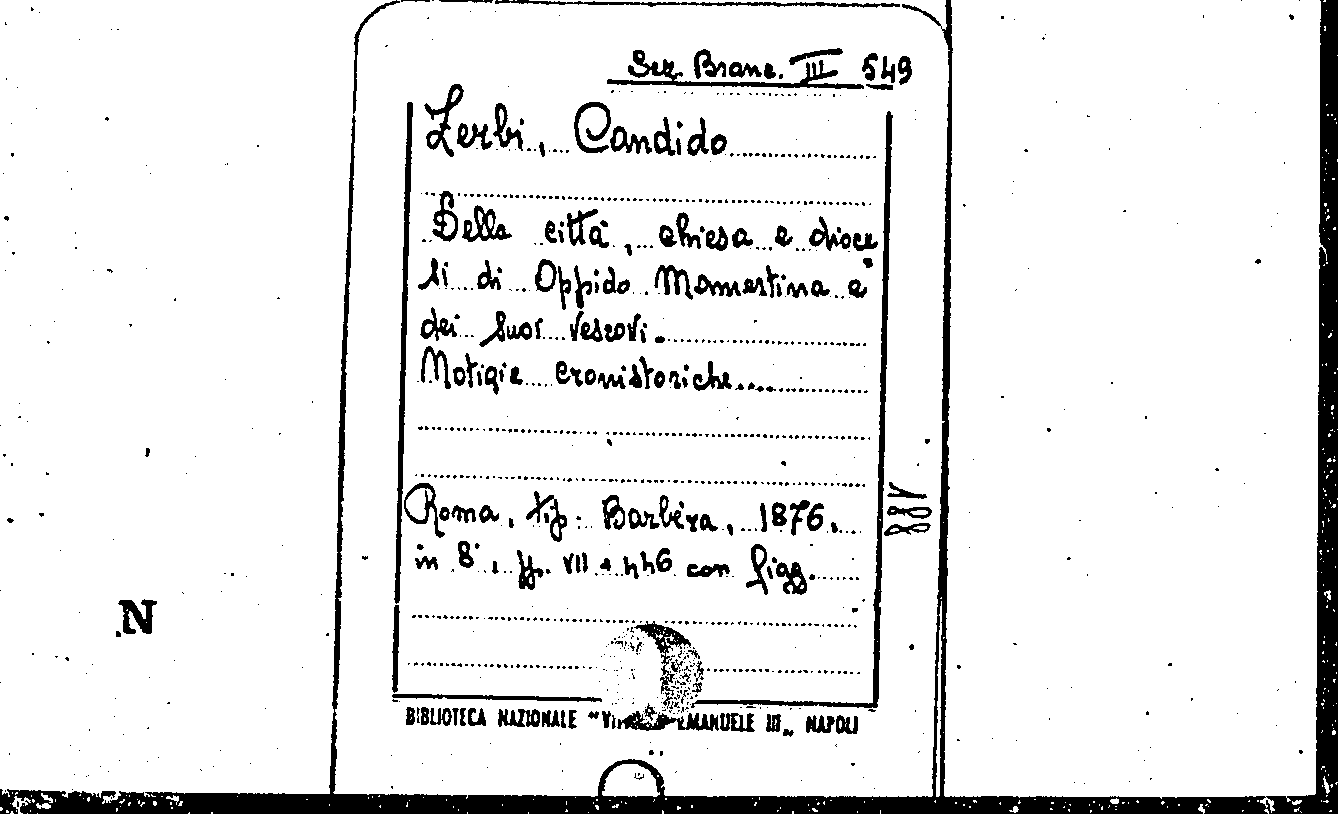 Sez. Branc. III 549
Zerbi, Candido
Della città, chiesa e dioce
si di Oppido Mamertina e
dei suoi vescovi.
Notizie cronistoriche....
Roma, tip. Barbèra, 1876.
in 8°, pp. VII + 446 con figg.
BIBLIOTECA NAZIONALE "VITTORIO EMANUELE III„ NAPOLI
N